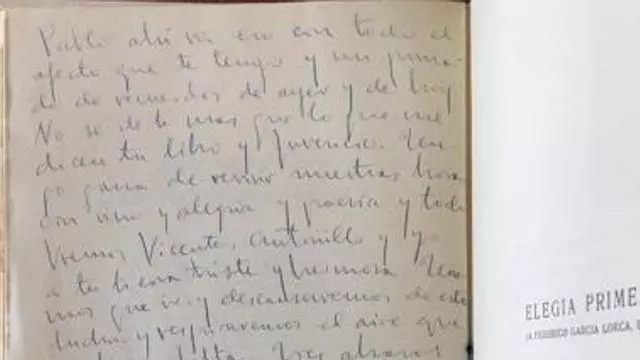 Pablo ahí va eso con todo el
afecto que te tengo y un puña-
do de recuerdos de ayer y de hoy
No se de ti mas que lo que me
dicen tu libro y Juvencio. Ten
go gana de revivir nuestras horas
con vino y alegria y poesia y todo
Iremos Vicente, Antonillo y yo
a tu tierra triste y hermosa. Tene
mos que ir y descansaremos de esta
lucha y respiraremos el aire que
falta. Tres abrazos
ELEGIA PRIME
(A FEDERICO GARCIA LORCA,